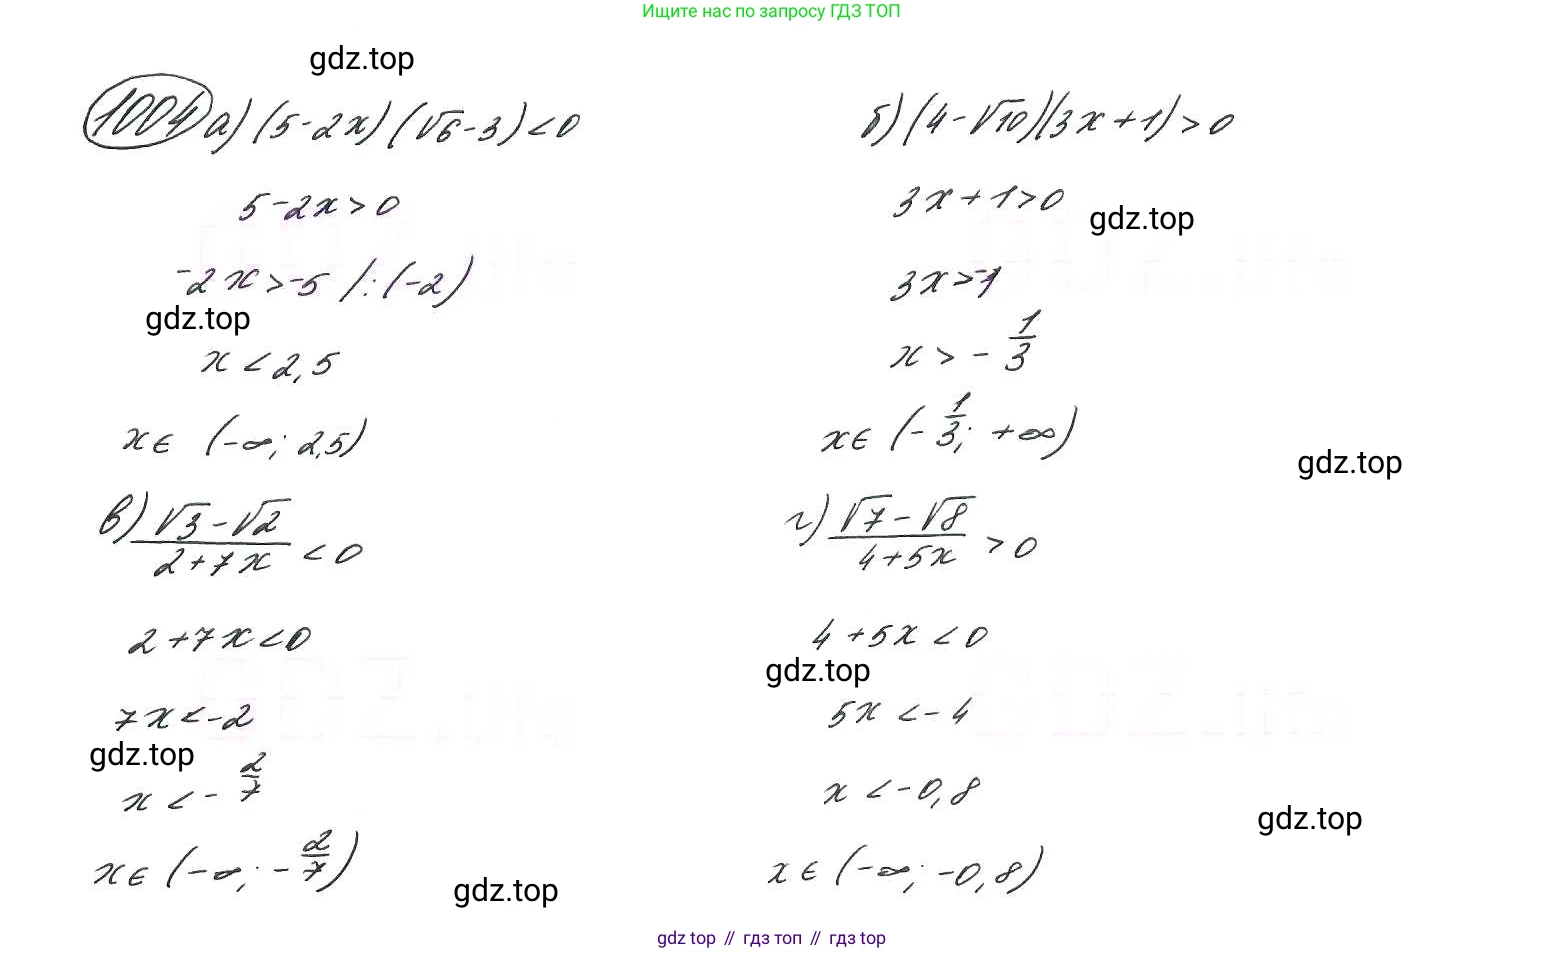 Ищите нас по запросу ГДЗ ТОП
gdz.top
1004 а) (5-2x)(√6-3)<0
5-2x>0
-2x>-5 /:(-2)
gdz.top
x<2,5
x∈ (-∞; 2,5)
б) (4-√10)(3x+1)>0
3x+1>0
gdz.top
3x>-1
x>-1/3
x∈ (-1/3; +∞)
gdz.top
в) (√3-√2)/(2+7x) <0
2+7x<0
7x<-2
gdz.top
x<-2/7
x∈ (-∞; -2/7)
gdz.top
г) (√7-√8)/(4+5x) >0
4+5x<0
gdz.top
5x<-4
x<-0,8
gdz.top
x∈ (-∞; -0,8)
gdz top // гдз топ // гдз top